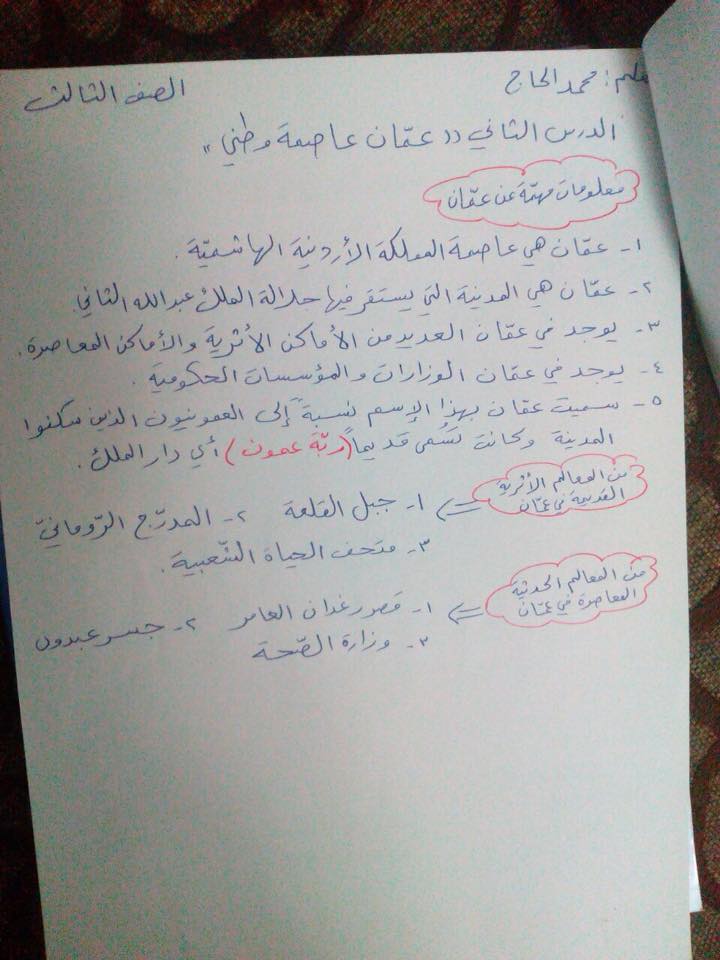 علم : محمد الحاج الصف الثالث
الدرس الثاني (( عمّان عاصمة وطني ))
معلومات مهمّة عن عمّان
١- عمّان هي عاصمة المملكة الأردنية الهاشميّة .
٢- عمّان هي المدينة التي يستقر فيها جلالة الملك عبدالله الثاني.
٣- يوجد في عمّان العديد من الأماكن الأثرية والأماكن المعاصرة .
٤- يوجد في عمّان الوزارات والمؤسسات الحكومية .
٥- سميت عمّان بهذا الإسم نسبةً إلى العمونيون الذين سكنوا
المدينة وكانت تسمى قديماً (ربّة عمون) أي دار الملك .
من المعالم الأثرية
القديمة في عمّان
١- جبل القلعة ٢- المدرّج الرّومانيّ
٣- متحف الحياة الشّعبية .
من المعالم الحديثة
المعاصرة في عمّان
١- قصر رغدان العامر ٢- جسر عبدون
٣- وزارة الصّحة